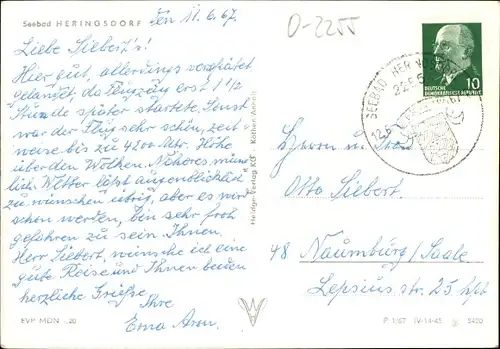 Seebad HERINGSDORF
Den 11.6.67.
0-2255
Liebe Siebert's!
Hier gut, allerdings verspätet
gelandet, da Flugzeug erst 1 1/2
Stunde später startete. Sonst
war der Flug sehr schön, zeit-
weise bis zu 4200 mtr. Höhe
über den Wolken. Näheres münd-
lich. Wetter läßt augenblicklich
zu wünschen übrig, aber es wird
schon werden, bin sehr froh
gefahren zu sein. Ihnen,
Herr Siebert, wünsche ich eine
gute Reise und Ihnen beiden
herzliche Grüße
Ihre
Erna
EVP MDN -.20
10
DEUTSCHE
DEMOKRATISCHE REPUBLIK
SEEBAD
12.6
Herrn u. Frau
Otto Siebert
48 Naumburg/Saale
Lepsius str. 25 hpt
P 1/67 IV-14-45 5450